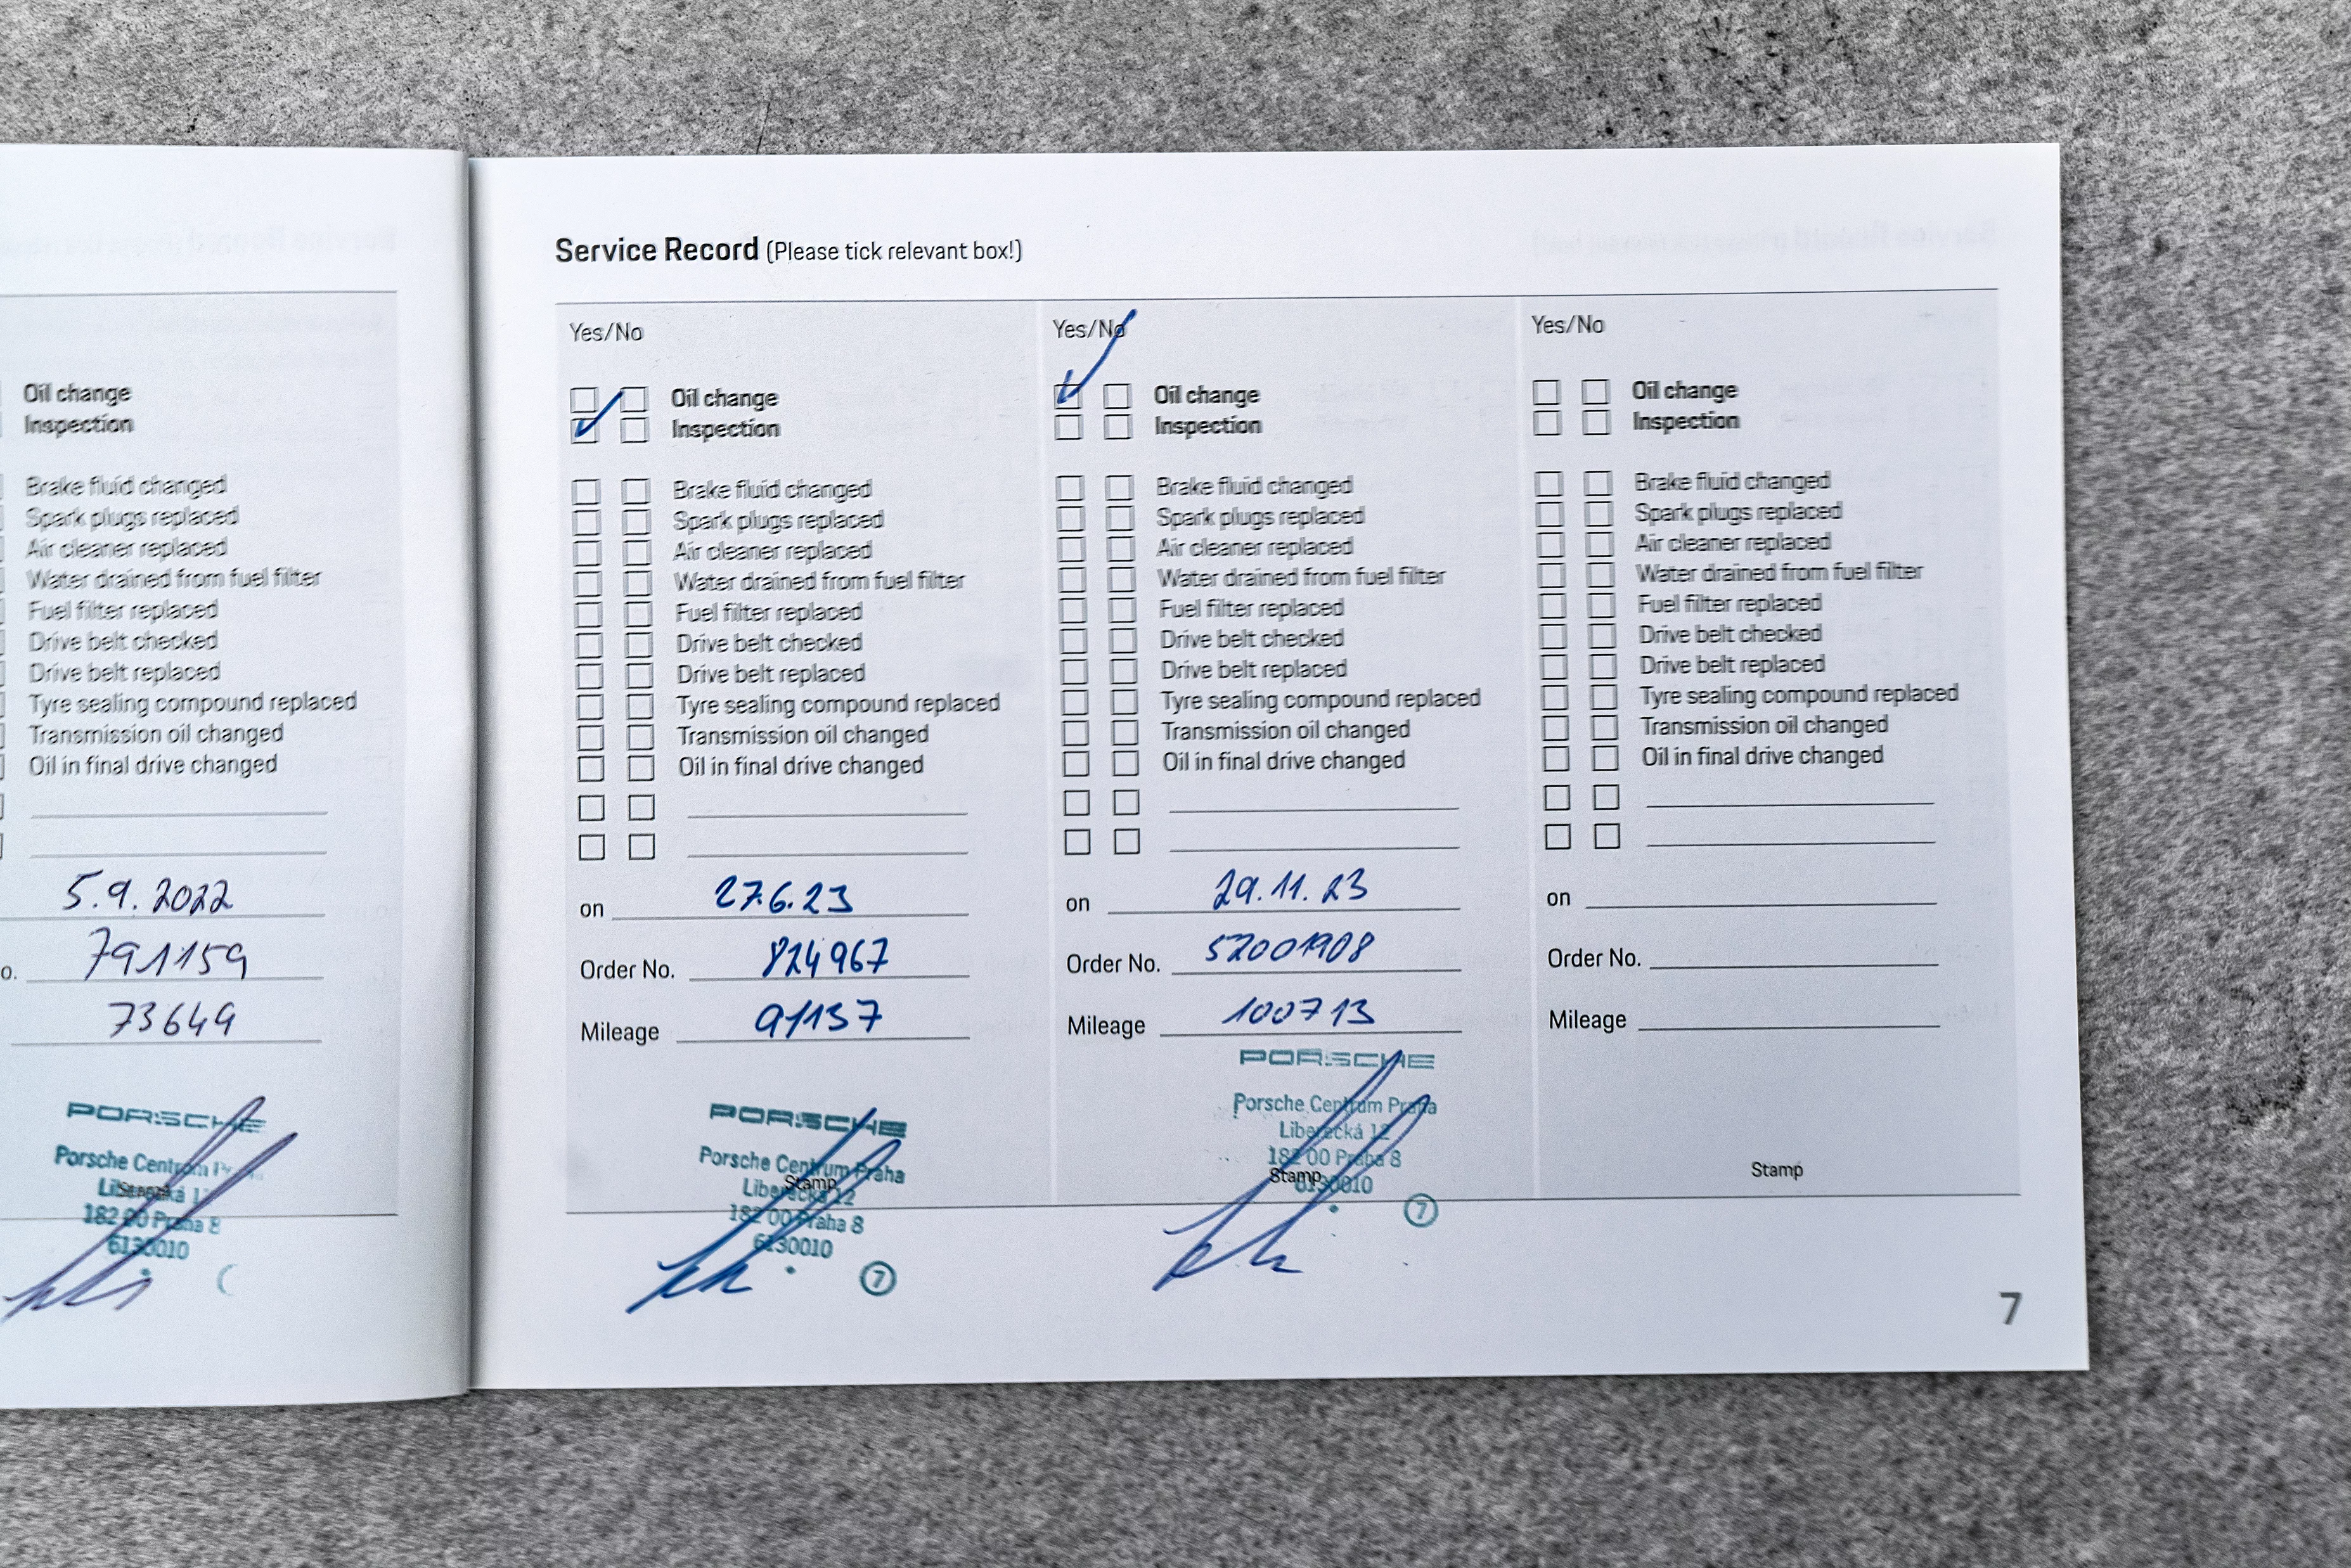 Oil change
Inspection
Brake fluid changed
Spark plugs replaced
Air cleaner replaced
Water drained from fuel filter
Fuel filter replaced
Drive belt checked
Drive belt replaced
Tyre sealing compound replaced
Transmission oil changed
Oil in final drive changed
5.9.2022
o. 791159
73649
PORSCHE
Porsche Centrum
Liberecká
Stamp
182 00 Praha 8
6130010
Service Record (Please tick relevant box!)
Yes/No
Oil change
Inspection
Brake fluid changed
Spark plugs replaced
Air cleaner replaced
Water drained from fuel filter
Fuel filter replaced
Drive belt checked
Drive belt replaced
Tyre sealing compound replaced
Transmission oil changed
Oil in final drive changed
on 27.6.23
Order No. 824967
Mileage 91137
PORSCHE
Porsche Centrum Praha
Stamp
Liberecká 12
182 00 Praha 8
6130010
7
Yes/No
Oil change
Inspection
Brake fluid changed
Spark plugs replaced
Air cleaner replaced
Water drained from fuel filter
Fuel filter replaced
Drive belt checked
Drive belt replaced
Tyre sealing compound replaced
Transmission oil changed
Oil in final drive changed
on 29.11.23
Order No. 52001908
Mileage 100713
PORSCHE
Porsche Centrum Praha
Liberecká 12
182 00 Praha 8
Stamp
6130010
7
Yes/No
Oil change
Inspection
Brake fluid changed
Spark plugs replaced
Air cleaner replaced
Water drained from fuel filter
Fuel filter replaced
Drive belt checked
Drive belt replaced
Tyre sealing compound replaced
Transmission oil changed
Oil in final drive changed
on
Order No.
Mileage
Stamp
7